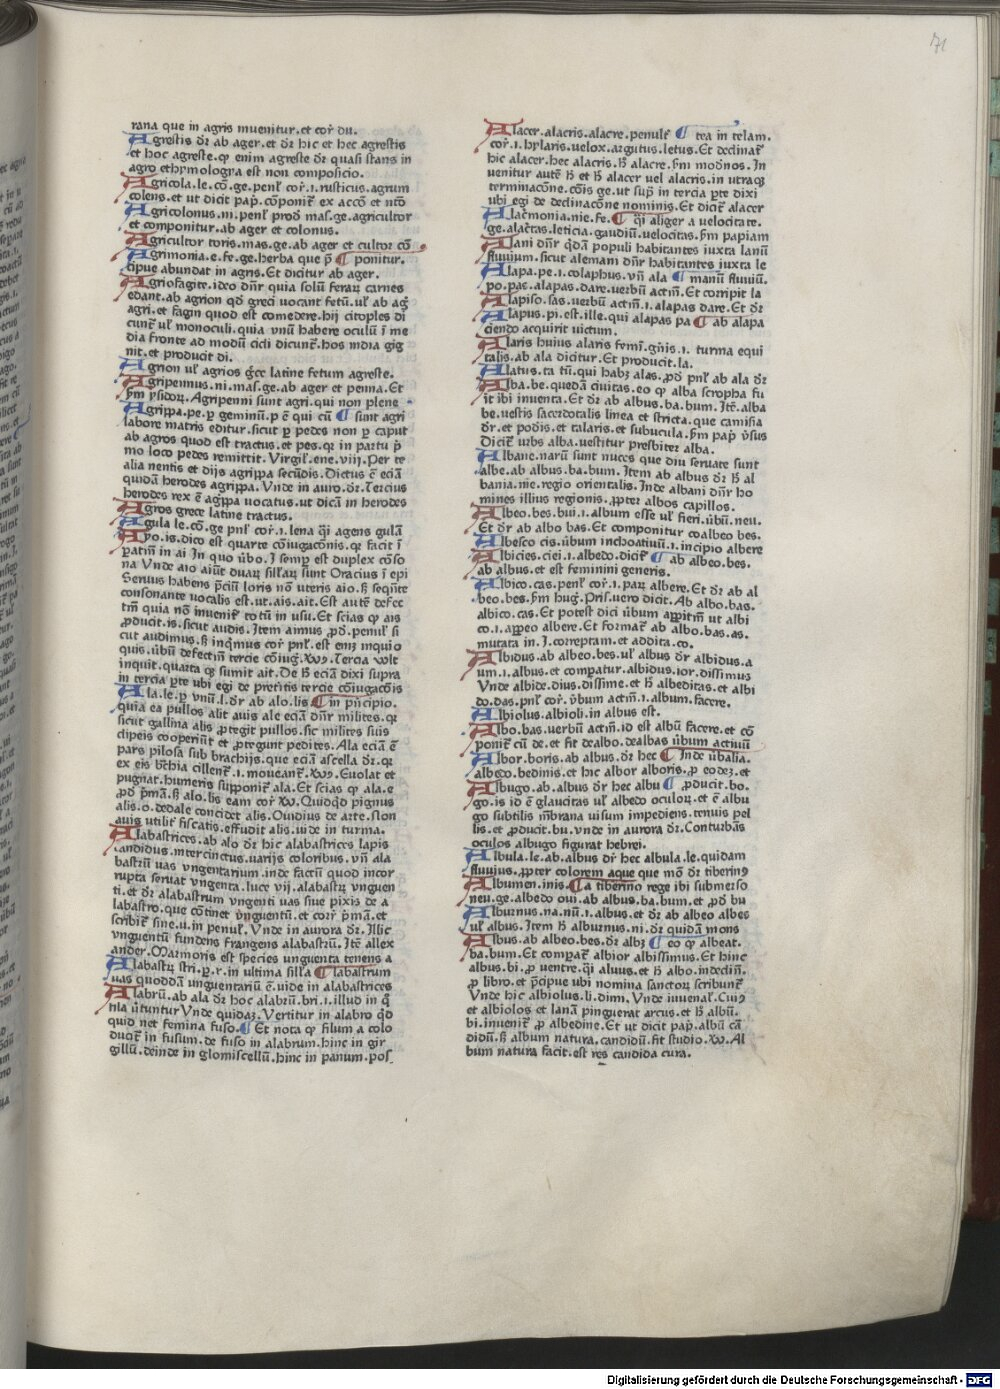 71
rana que in agris inuenitur.et cor̄ du.
Agrestis dr̄ ab ager.et dr̄ hic et hec agrestis
et hoc agreste.qꝫ enim agreste dr̄ quasi stans in
agro ethymologya est non composicio.
Agricola.le.cō.ge.penl̄ cor̄.i.rusticus.agrum
colens.et ut dicit pap̄.cōponit᷑ ex accō et nc̄tō
Agricolonus.ni.penl̄ prod̄ mas.ge.agricultor
et componitur.ab ager et colonus.
Agricultor toris.mas.ge.ab ager et cultor cō
Agrimonia.e.fe.ge.herba que p̄ ¶ ponitur.
cipue abundat in agris.Et dicitur ab ager.
Agriofagite.ideo dn̄r quia solū feraꝝ carnes
edant.ab agrion qd̄ greci uocant fetū.ul̄ ab aḡ
agri.et fagin quod est comedere.hij citoples di
cunt᷑ ul̄ monoculi.quia vnū habere oculū ī me
dia fronte ad modū cicli dicunt᷑.hos india gig
nit.et producit di.
Agrion ul̄ agrios gr̄ce latine fetum agreste.
Agripennus.ni.mas.ge.ab ager et penna.Et
ẜm ysidoꝝ.Agripenni sunt agri.qui non plene
Agrippa.pe.ꝑ geminū.p ē qui cū ¶ sunt agri
labore matris editur.sicut ꝑ pedes non ꝑ caput
ab agros quod est tractus.et pes.qꝛ in partu p̄
mo loco pedes remittit.Virgil̄.ene.viij.Per te
alia nentis et dijs agrippa secūdis.Dictus ē eciā
quidā herodes agrippa.Vnde in auro.dr̄.Tercius
herodes rex ē agrippa uocatus.ut dicā in herodes
Agros grece latine tractus.
Agula le.cō.ge pnl̄ cor̄.i.lena qī agens gulā
Ayo.is.dico est quarte cōiugacōnis.qꝛ facit ī
p̄atiuū in ai In quo v̄bo.I semꝑ est duplex cōso
na Vnde aio aiūt duaꝝ sillaꝝ sunt Oracius ī epi
Seruus habens p̄ciū loris nō uteris aio.ẜ seqn̄te
consonante vocalis est.ut.ais.ait.Est autē defec
tiū quia nō inuenit᷑ totū in usu.Et scias qꝫ ais
ꝓducit.is.sicut audis.Item aimus ꝓd̄.penul̄ si
cut audimus.ẜ inq̄mus cor̄ pnl̄.est enī inquio
quis.ūbū defectiū tercie cōiug.Xꝰ.Tercia vult
inquit.quarta qꝫ sumit ait.De ħ eciā dixi supra
in tercia ꝑte ubi egi de preītis tercie cōiugacōis
Ala.le.ꝑ vnū.l.dr̄ ab alo.lis ¶ in pn̄cipio.
quia ea pullos alit auis ale eciā dn̄r milites.qꝛ
sicut gallina alis ꝓtegit pullos.sic milites suis
clipeis cooperiūt et ꝓtegunt pedites.Ala eciā ē
pars pilosa sub brachijs.que eciā ascella dr̄.qꝛ
ex eis bͬchia cillent᷑.i.moueant᷑.Xꝰ.Euolat et
pugnat.humeris supponit᷑ ala.Et scias qꝫ ala.e
ꝓd̄ p̄mā.ẜ alo.lis eam cor̄ Xꝰ.Quidqd̄ pignus
alis.o.dedale concidet alis.Ouidius de arte.Non
auis utilit᷑ fiscatis.effudit alis.uide in turma.
Alabastrices.ab alo dr̄ hic alabastrices lapis
candidus.intercinctus.uarijs coloribus.vn̄ ala
bastrū uas vngentarium.inde factū quod incor
rupta seruat vngenta.luce vij.alabastꝝ vnguen
ti.et dr̄ alabastrum vngenti uas siue pixis de a
labastro.que cōtinet vnguentū.et cor̄ p̄mā.et
scribit᷑ sine.u.in penul̄.Vnde in aurora dr̄.Illic
vnguentū fundens frangens alabastrū.Itē allex
ander.Marmoris est species vnguenta tenens a
Alabastꝝ stri.ꝑ.r.in ultima silla ¶ labastrum
uas quoddā unguentariū ē.uide in alabastrices
Alabrū.ab ala dr̄ hoc alabrū.bri.i.illud in q̄
fila ūtuntur Vnde quidaꝫ.Vertitur in alabro qd̄
quid net femina fuso.¶ Et nota qꝫ filum a colo
ducit᷑ in fusum.de fuso in alabrum.hinc in gir
gillū.deinde in glomiscellū.hinc in panum.pos
Alacer.alacris.alacre.penult᷑ ¶ tea in telam.
cor̄.i.hylaris.uelox.argutus.letus.Et declinat᷑
hic alacer.hec alacris.ħ alacre.ẜm mod̄nos.In
uenitur autē ħ et ħ alacer uel alacris.in utraqꝫ
terminacōne.cōis ge.ut sup̄ in tercia ꝑte dixi
ubi egi de declinacōne nominis.Et dicit᷑ alacer
Alacͬmonia.nie.fe.¶ qī aliger a uelocitate.
ge.alacͬtas.leticia.gaudiū.uelocitas.ẜm papiam
Alani dn̄r qd̄ā populi habitantes iuxta lanū
fluuium.sicut alemani dn̄r habitantes iuxta le
Alapa.pe.i.colaphus.vn̄ ala ¶ manū fluuiū.
po.pas.alapas.dare.uerbū actiū.Et corripit la
Alapiso.sas.uerbū actiū.i.alapas dare.Et dr̄
Alapus.pi.est.ille.qui alapas pa ¶ ab alapa
ciendo acquirit uictum.
Alaris huius alaris femī.gn̄is.i. turma equi
talis.ab ala dicitur.Et producit.la.
Alatus.ta tū.qui habꝫ alas.ꝓd̄ pnl̄ ab ala dr̄
Alba.be.quedā ciuitas.eo qꝫ alba scropha fu
it ibi inuenta.Et dr̄ ab albus.ba.bum.Itē.alba
be.uestis sacerdotalis linea et stricta.que camisia
dr̄.et podis.et talaris.et subucula.ẜm pap̄ v̄sus
Dicit᷑ urbs alba.uestitur presbiter alba.
Albane.narū sunt nuces que diu seruate sunt
albe.ab albus.ba.bum.Item ab albus dr̄ ħ al
bania.nie.regio orientalis.Inde albani dn̄r ho
mines illius regionis.ꝓpter albos capillos.
Albeo.bes.bui.i.album esse ul̄ fieri.ūbū.neu.
Et dr̄ ab albo bas.Et componitur coalbeo bes.
Albesco cis.ūbum inchoatiuū.i.incipio albere
Albicies.ciei.i.albedo.dicit᷑ ¶ ab albeo.bes.
ab albus.et est feminini generis.
Albico.cas.penl̄ cor̄.i.parꝝ albere.Et dr̄ ab al
beo.bes.ẜm huḡ.Pris.uero dicit.Ab albo.bas.
albico.cas.Et potest dici ūbum appītiū ut albi
co.i.appeo albere.Et format᷑ ab albo.bas.as.
mutata in.I.correptam.et addita.co.
Albidus.ab albeo.bes.ul̄ albus dr̄ albidus.a
um.i.albus.et compatur.albidus.ior.dissimuꝫ
Vnde albide.dius.dissime.et ħ albeditas.et albi
do.das.pnl̄ cor̄.v̄bum actiū.i.album.facere.
Albiolus.albioli.in albus est.
Albo.bas.uerbū actiū.id est albū facere.et cō
ponit᷑ cū de.et fit dealbo.dealbas ūbum actiuū
Albor.boris.ab albus.dr̄ hec ¶ Inde ūbalia.
albedo.bedinis.et hic albor alboris.ꝓ eodeꝫ.et
Albugo.ab albus dr̄ hec albu ¶ ꝓducit.bo.
go.is id ē glaucitas ul̄ albedo oculoꝝ.et ē albu
go subtilis mēbrana uisum impediens.tenuis pel
lis.et ꝓducit.bu.vnde in aurora dr̄.Conturbās
oculos albugo figurat hebrei.
Albula.le.ab albus dr̄ hec albula.le.quidam
fluuius.ꝓpter colorem aque que mō dr̄ tiberinꝰ
Albumen.inis.¶ a tiberino rege ibi submerso
neu.ge.albedo oui.ab albus.ba.bum.et ꝓd̄ bu
Alburnus.na.nū.i.albus.et dr̄ ab albeo albes
ul̄ albus.Item ħ alburnus.ni.dr̄ quidā mons
Albus.ab albeo.bes.dr̄ albꝫ ¶ eo qꝫ albeat.
ba.bum.Et compat᷑ albior albissimus.Et hinc
albus.bi.ꝓ ventre.qī aluus.et ħ albo.indecliū.
ꝓ libro.et p̄cipue ubi nomina sanctoꝝ scribunt᷑
Vnde hic albiolus.li.dim̄.Vnde iuuenal᷑.Cuiꝰ
et albiolos et lanā pinguerat arcus.et ħ albū.
bi.inuenit᷑ ꝓ albedine.Et ut dicit pap̄.albū cā
didū.ẜ album natura.candidū.fit studio.Xꝰ.Al
bum natura facit.est res candida cura.
Digitalisierung gefördert durch die Deutsche Forschungsgemeinschaft - DFG